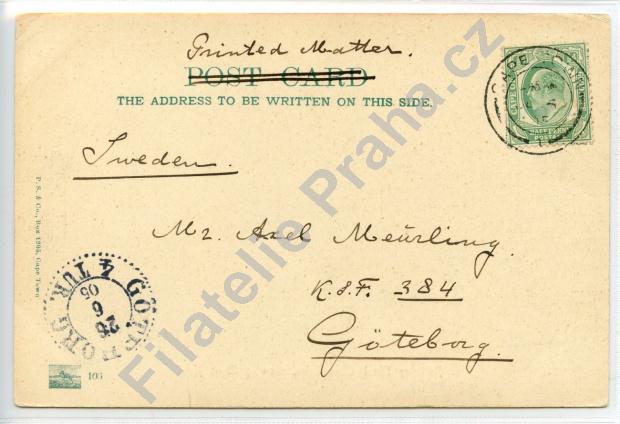 Printed Matter.
POST CARD
THE ADDRESS TO BE WRITTEN ON THIS SIDE.
CAPE
HALF PENNY
Sweden.
Mr. Axel Meürling.
K.S.F. 384
Göteborg.
P. S. & Co., Box 1295, Cape Town
GÖTEBORG
4 TUR
26
6
05
105
Filatelie Praha.cz